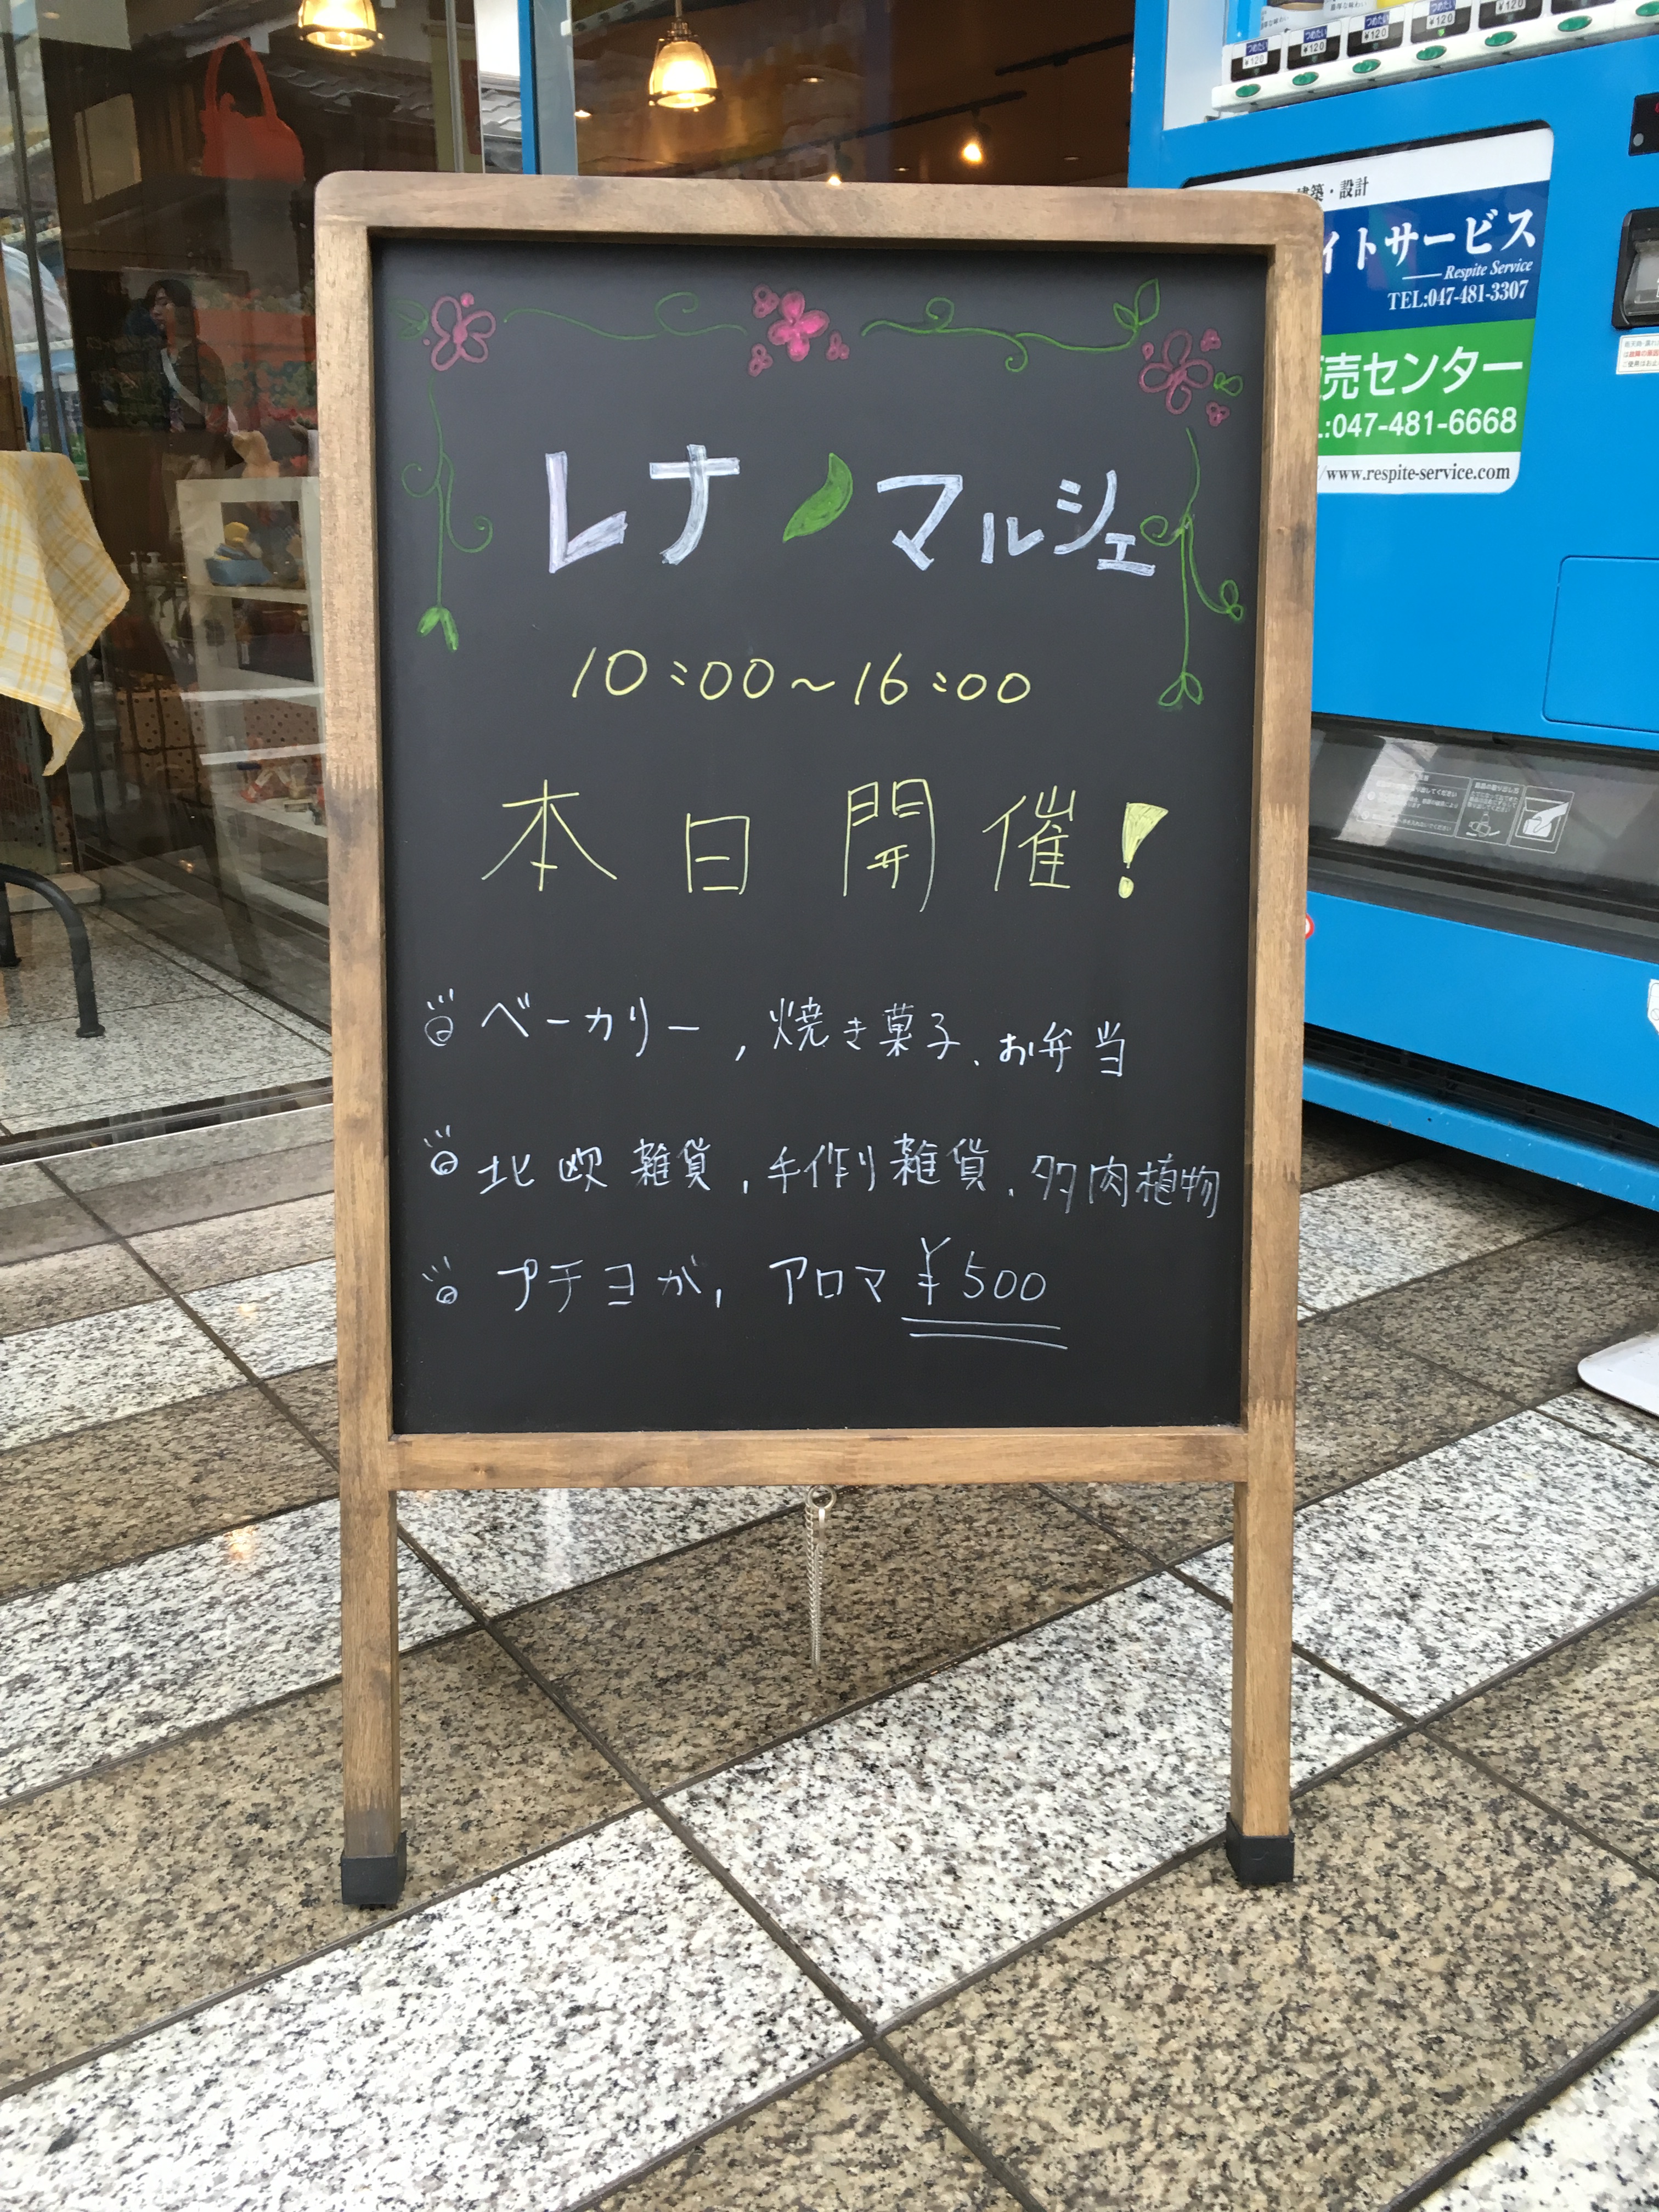 レナ マルシェ
10:00～16:00
本日開催!
ベーカリー, 焼き菓子、お弁当
北欧雑貨, 手作り雑貨、多肉植物
プチヨガ, アロマ ¥500
つめたい つめたい つめたい つめたい
¥120 ¥120 ¥120 ¥120 ¥120
建築・設計
イトサービス
Respite Service
TEL:047-481-3307
売センター
:047-481-6668
/www.respite-service.com